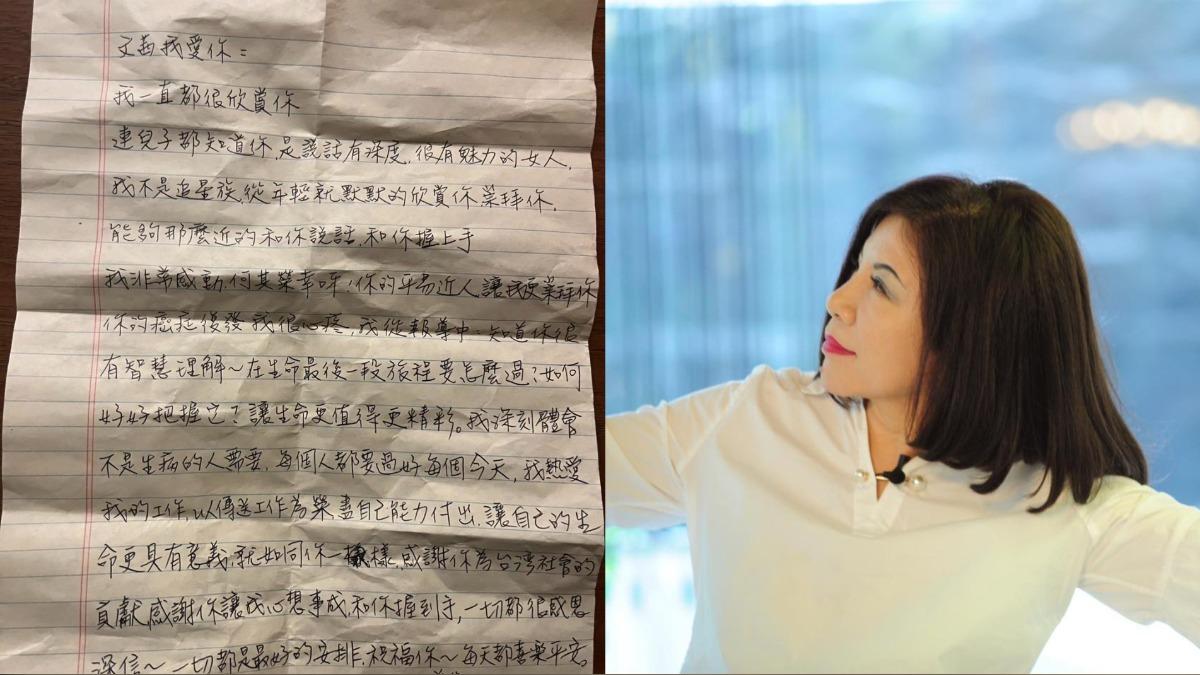 文茜我愛你：
我一直都很欣賞你
連兒子都知道你,是說話有深度,很有魅力的女人,
我不是追星族,從年輕就默默的欣賞你崇拜你,
能夠那麼近的和你說話,和你握上手
我非常感動,何其榮幸呀!你的平易近人,讓我更崇拜你
你的癌症復發,我很心疼,我從報導中,知道你很
有智慧理解～在生命最後一段旅程要怎麼過?如何
好好把握它?讓生命更值得更精彩。我深刻體會
不是生病的人需要,每個人都要過好每個今天,我熱愛
我的工作,以傳送工作為榮,盡自己能力付出,讓自己的生
命更具有意義,就如同你一樣,感謝你為台灣社會的
貢獻,感謝你讓我心想事成,和你握到手,一切都很感恩
深信～一切都是最好的安排,祝福你～每天都喜樂平安。